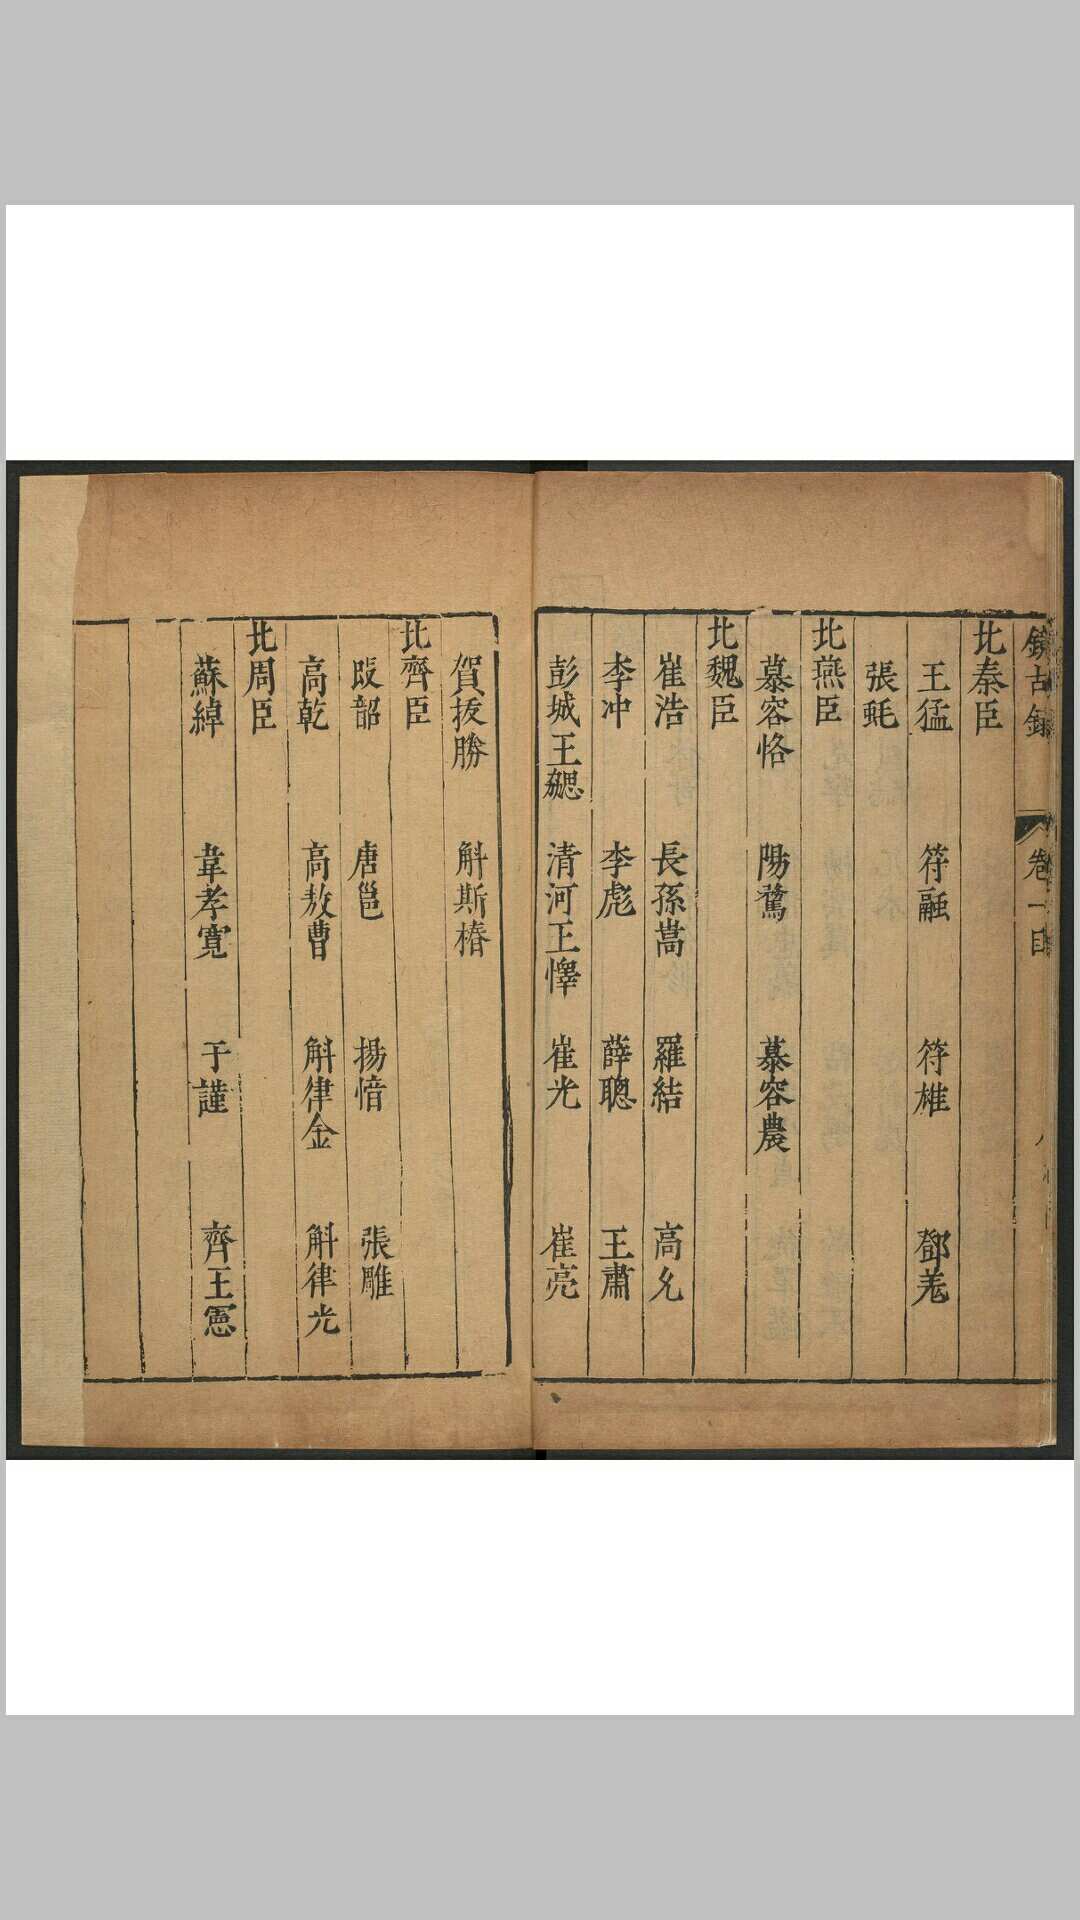 鏡古錄 卷一目
北秦臣
王猛 符融 符雄 鄧羌
張蚝
北燕臣
慕容恪 陽騖 慕容農
北魏臣
崔浩 長孫嵩 羅結 高允
李冲 李彪 薛聰 王肅
彭城王勰 清河王懌 崔光 崔亮
賀拔勝 斛斯椿
北齊臣
段韶 唐邕 揚愔 張雕
高乾 高敖曹 斛律金 斛律光
北周臣
蘇綽 韋孝寬 于謹 齊王憲